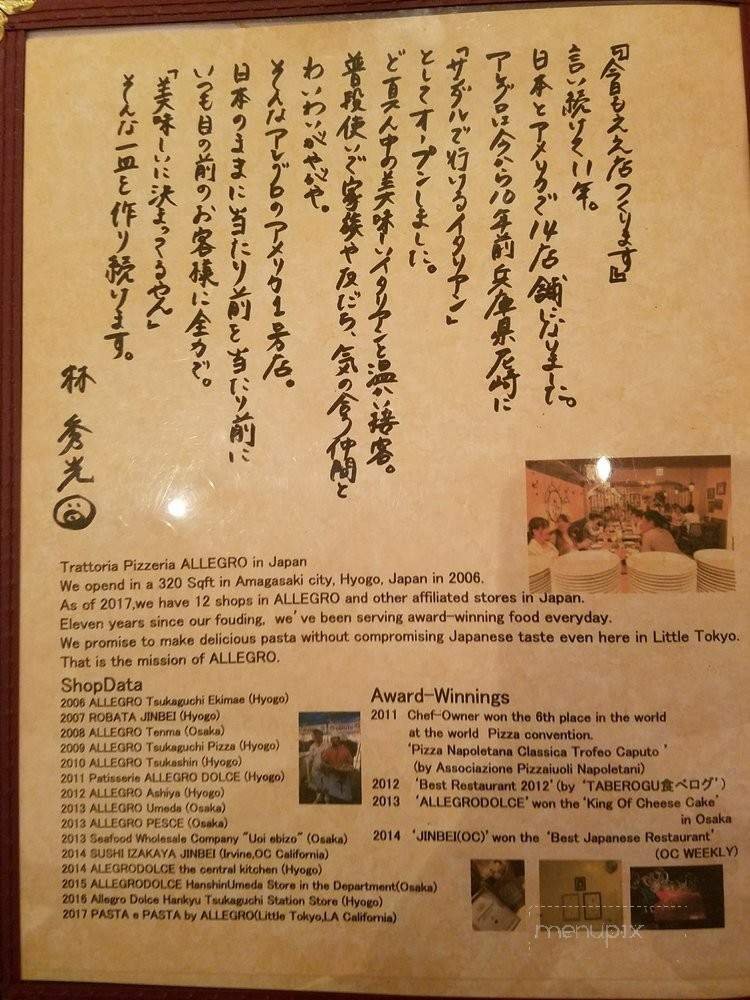 『今日もええ店つくります』
言い続けて11年。
日本とアメリカで14店舗になりました。
アレグロは今から10年前兵庫県尼崎に
「サンダルで行けるイタリアン」
としてオープンしました。
ど真ん中の美味しいイタリアンと温かい接客。
普段使いで家族や友だち、気の合う仲間と
わいわいがやがや。
そんなアレグロのアメリカ1号店。
日本のままに当たり前を当たり前に
いつも目の前のお客様に全力で。
「美味しいに決まってるやん」
そんな一皿を作り続けます。
林 秀光
Trattoria Pizzeria ALLEGRO in Japan
We opend in a 320 Sqft in Amagasaki city, Hyogo, Japan in 2006.
As of 2017,we have 12 shops in ALLEGRO and other affiliated stores in Japan.
Eleven years since our fouding, we've been serving award-winning food everyday.
We promise to make delicious pasta without compromising Japanese taste even here in Little Tokyo.
That is the mission of ALLEGRO.
ShopData
2006 ALLEGRO Tsukaguchi Ekimae (Hyogo)
2007 ROBATA JINBEI (Hyogo)
2008 ALLEGRO Tenma (Osaka)
2009 ALLEGRO Tsukaguchi Pizza (Hyogo)
2010 ALLEGRO Tsukashin (Hyogo)
2011 Patisserie ALLEGRO DOLCE (Hyogo)
2012 ALLEGRO Ashiya (Hyogo)
2013 ALLEGRO Umeda (Osaka)
2013 ALLEGRO PESCE (Osaka)
2013 Seafood Wholesale Company "Uoi ebizo" (Osaka)
2014 SUSHI IZAKAYA JINBEI (Irvine,OC California)
2014 ALEGRODOLCE the central kitchen (Hyogo)
2015 ALLEGRODOLCE HanshinUmeda Store in the Department(Osaka)
2016 Allegro Dolce Hankyu Tsukaguchi Station Store (Hyogo)
2017 PASTA e PASTA by ALLEGRO(Little Tokyo,LA California)
Award-Winnings
2011 Chef-Owner won the 6th place in the world
at the world Pizza convention.
'Pizza Napoletana Classica Trofeo Caputo '
(by Associazione Pizzaiuoli Napoletani)
2012 'Best Restaurant 2012'(by 'TABEROGU食べログ')
2013 'ALLEGRODOLCE' won the 'King Of Cheese Cake'
in Osaka
2014 'JINBEI(OC)' won the 'Best Japanese Restaurant'
(OC WEEKLY)
menupix